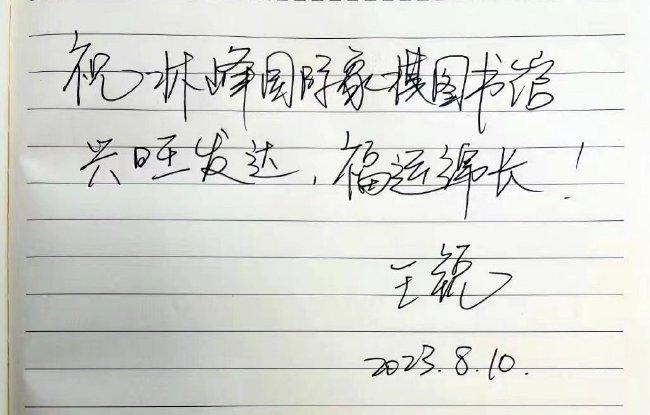 祝林峰国际象棋图书馆
兴旺发达，福运绵长！
王
2023.8.10.